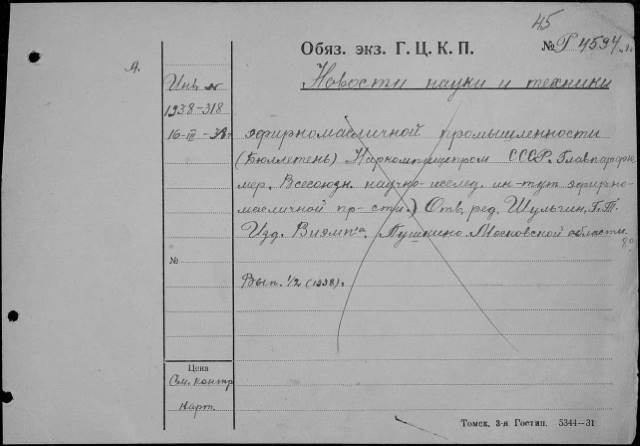 45
Обяз. экз. Г. Ц. К. П.
№ Р 4594
А.
Новости науки и техники
Инв. №
1938-318
16-III-38г.
эфирномасличной промышленности
(Бюллетень) Наркомпищепром СССР. Главпарфю
мер. Всесоюзн. научно-исслед. ин-тут эфирно-
масличной пр-сти.) Отв. ред. Шульгин, Г. Т.
Изд. Виэмп'а. Пушкино. Московской области.
8°
№
Вып. 1/2 (1938).
Цена
См. контр
карт.
Томск, 3-я Гостип. 5344—31